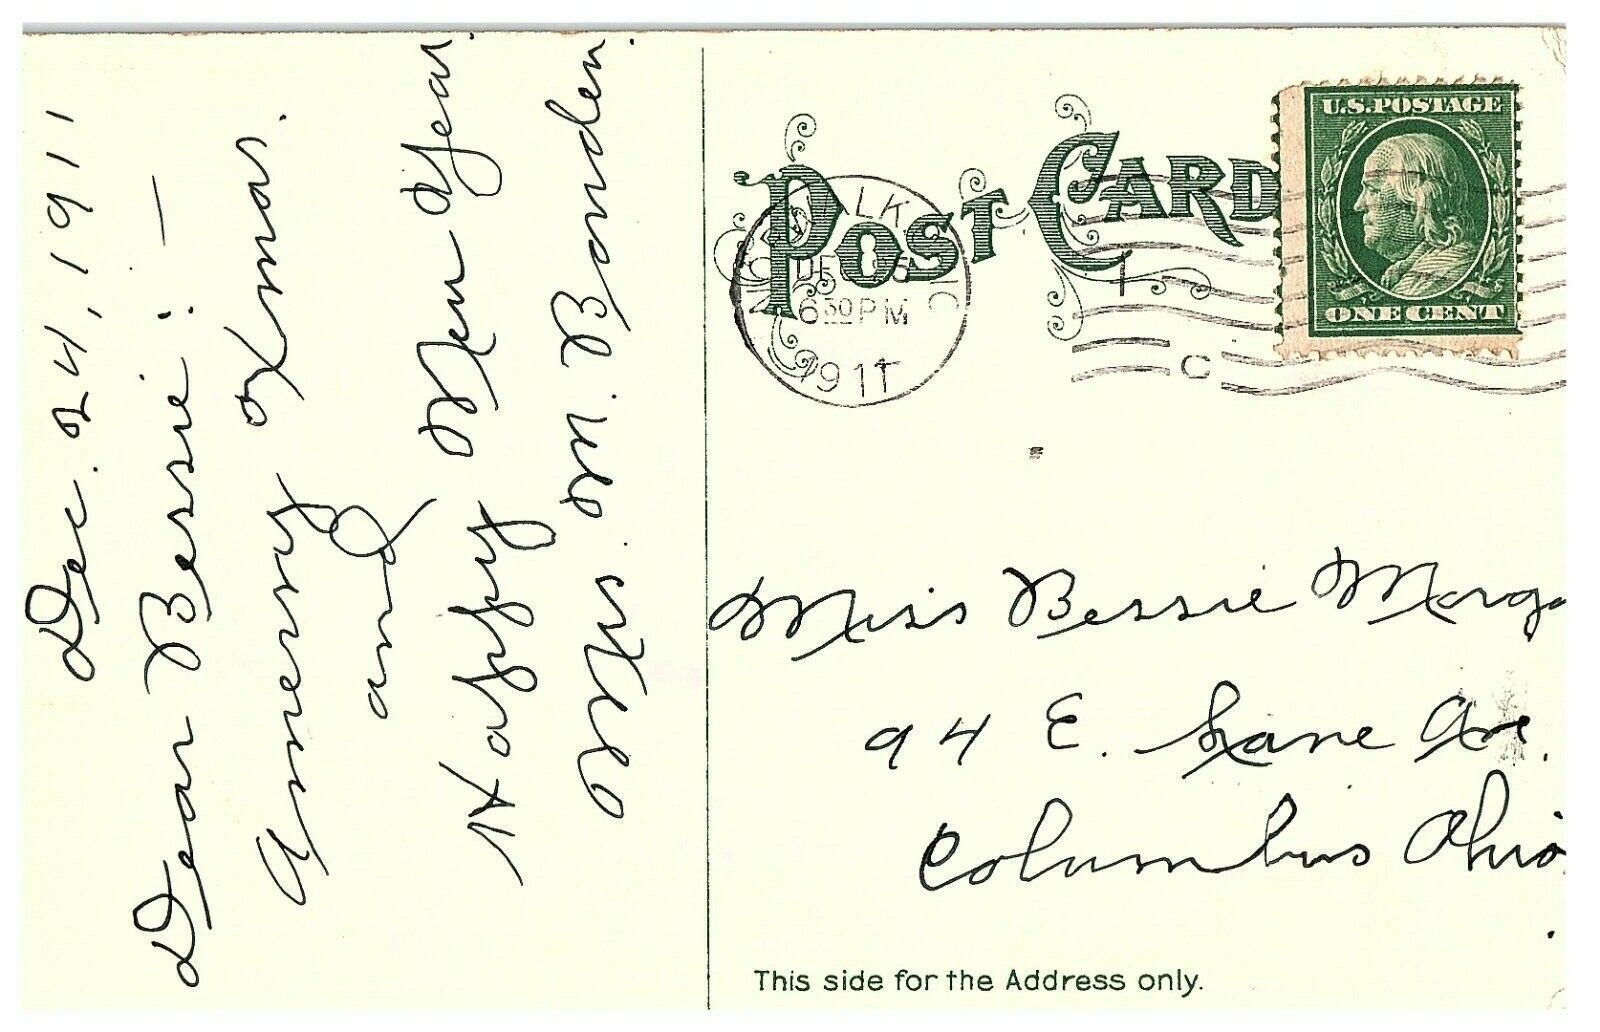 Dec. 24, 1911
Dear Bessie: —
A merry Xmas.
and
Happy New Year.
M. Bonden.
POST CARD
U.S. POSTAGE
ONE CENT
6 30 PM
1911
1
C
Miss Bessie Morga
94 E. Lane Ave.
Columbus Ohio
.
This side for the Address only.